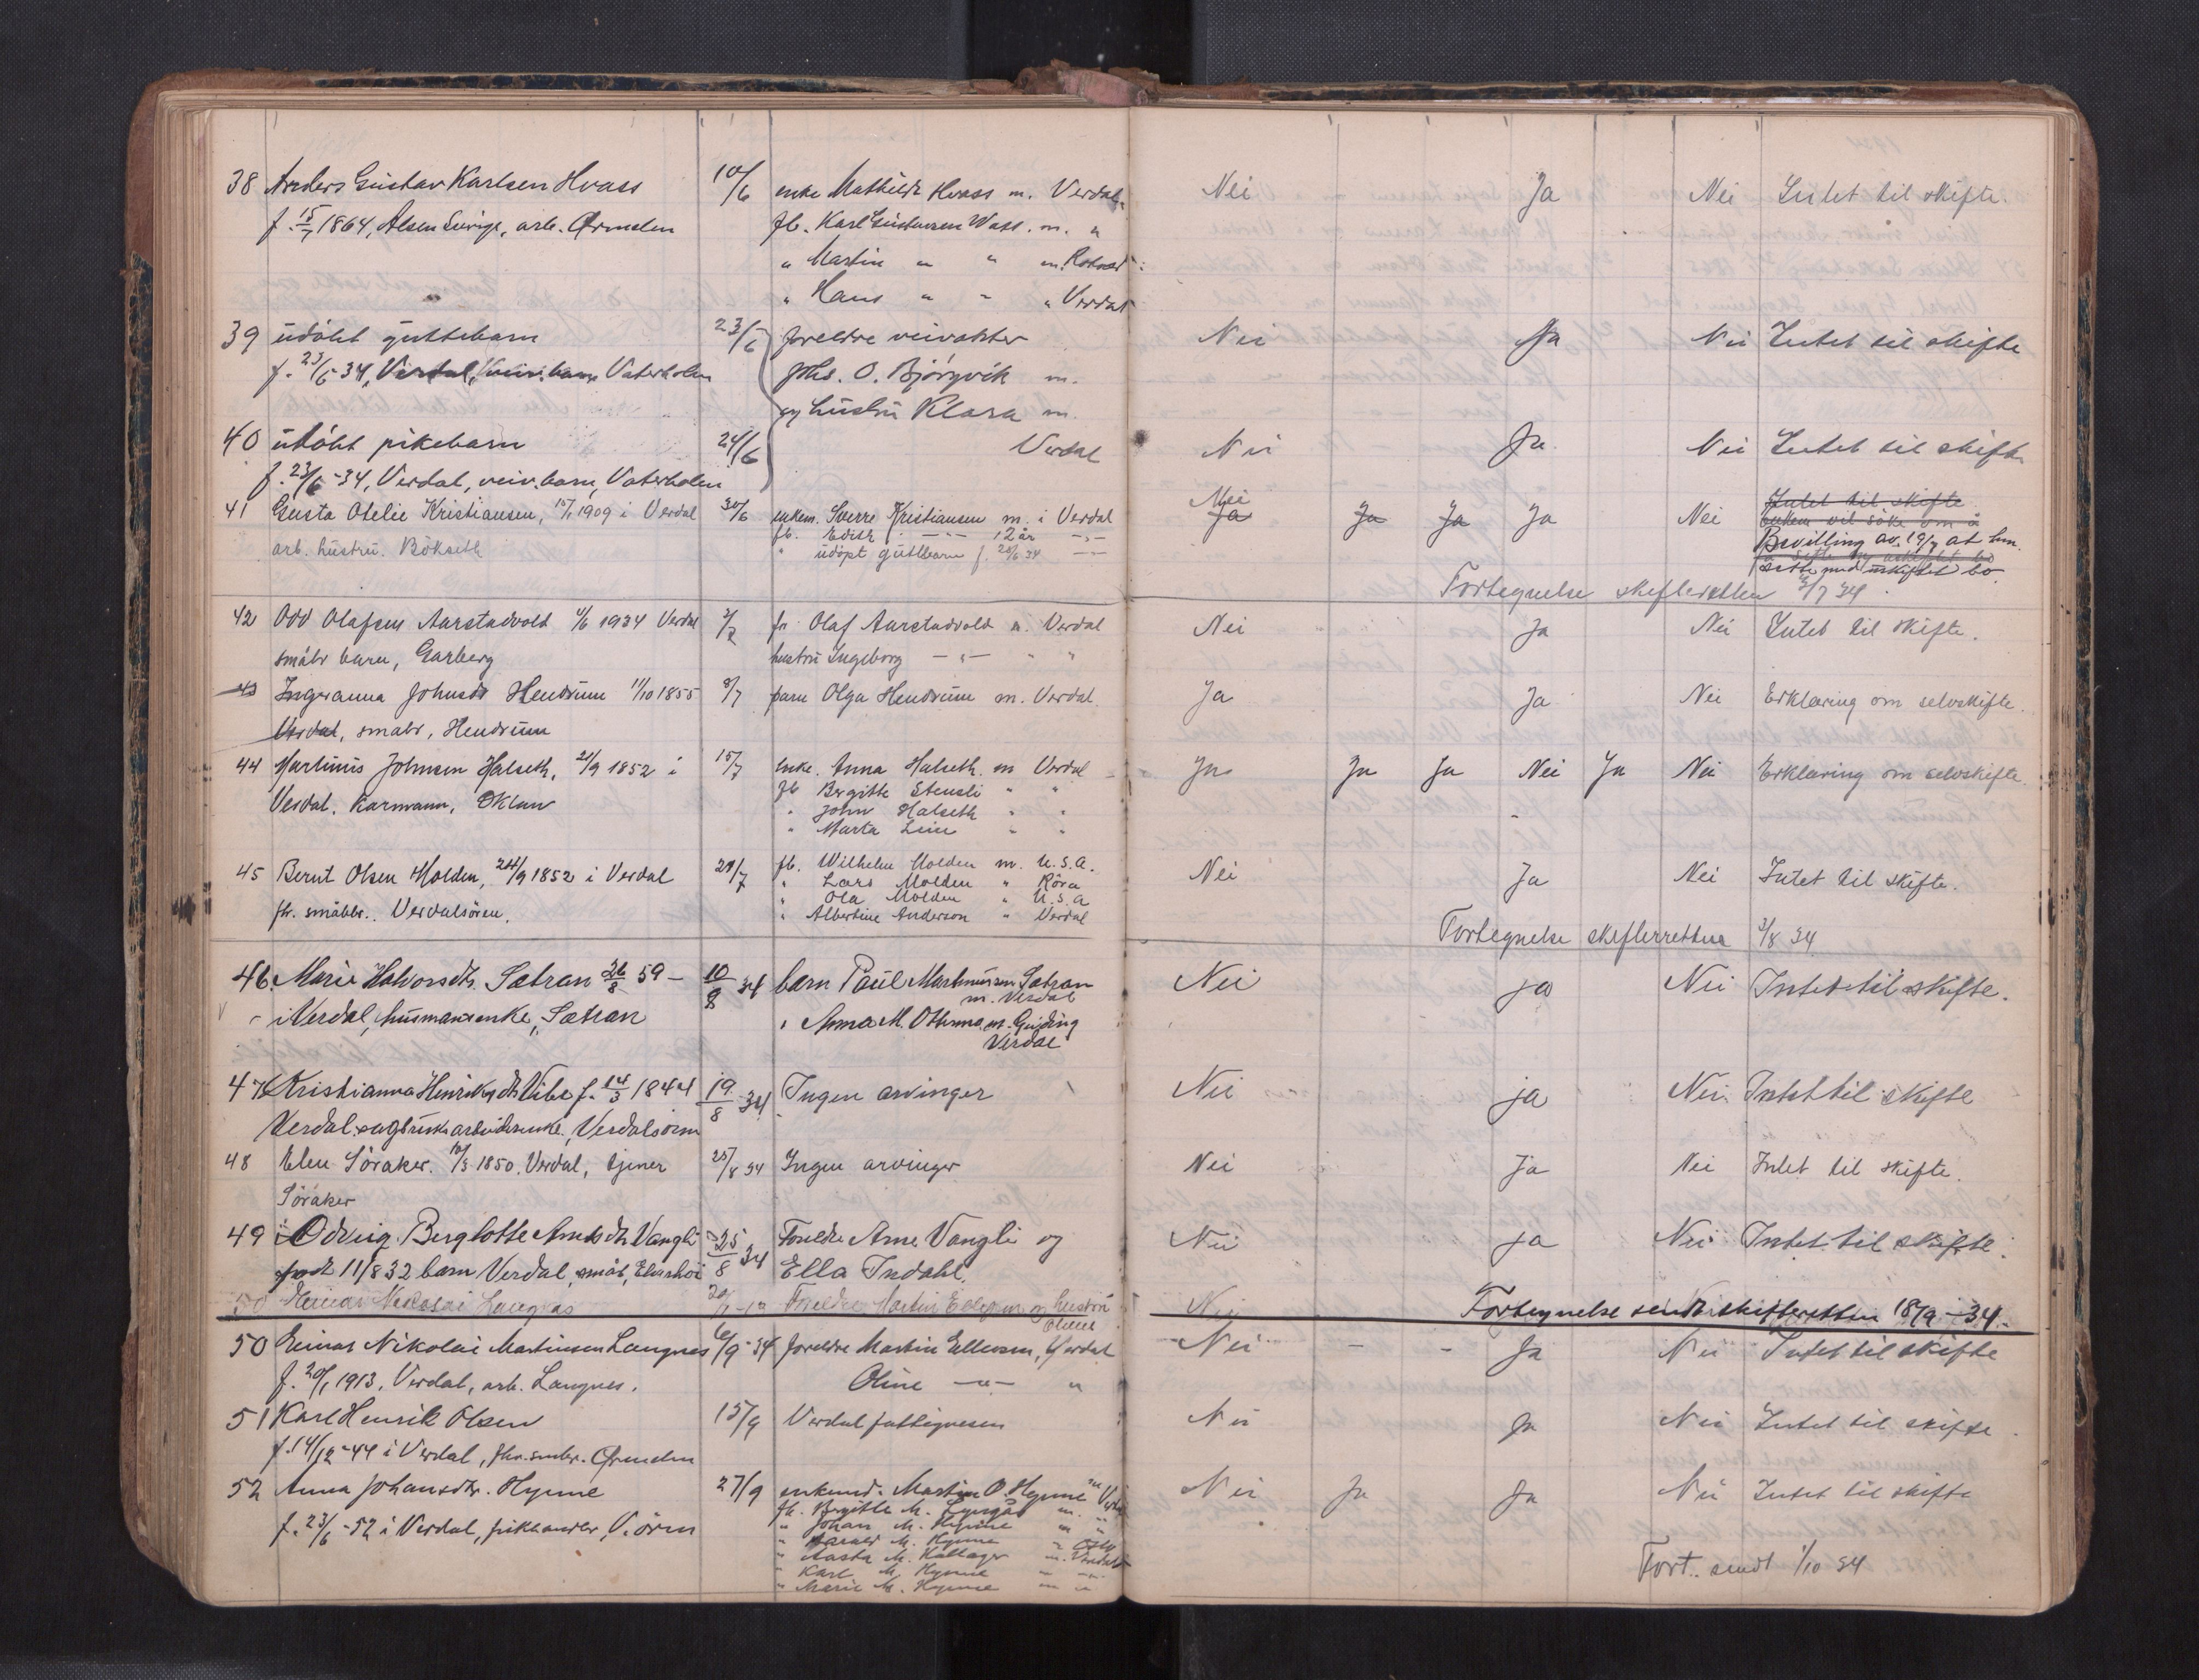 38 Anders Gustav Karlsen Hvass 10/6 enke Mathilde Hvass m. Verdal Nei Ja Nei Intet til skifte.
f. 15/7 1864, Alsen Sverige, arb. Ørmelen fb. Karl Gustavsen Wass. m. "
" Martin " " m.
" Hans " " " Verdal
39 udøbt guttebarn 23/6 foreldre veivokter Nei Ja Nei Intet til skifte
f. 23/6-34, Verdal, veiv. barn Vaterholm Johs. O. Bjørgvik m.
og hustru Klara m.
40 udøbt pikebarn 24/6 Verdal Nei Ja Nei Intet til skifte
f. 23/6-34, Verdal, veiv. barn, Vaterholm
41 Gusta Otelie Kristiansen, 15/1 1909 i Verdal 30/6 enkem. Sverre Kristiansen m. i Verdal Nei Ja Ja Ja Ja Nei Intet til skifte
enkem vil söke om å
arb. hustru. Bökseth fb. Edith — " — 12 år — " — Bevilling av 19/7 at han
" udöpt guttbarn f. 28/6 34 — " — sitte med uskiftet bo
Fortegnelse skifteretten 2/7 34
42 Odd Olafsen Aarstadvold 4/6 1934 Verdal 3/7 fr. Olaf Aarstadvold m. Verdal Nei Ja Nei Intet til skifte.
småbr barn, Garberg hustru Ingeborg — " — " "
43 Ingeranna Johnsdt Hendrum 11/10 1855 8/7 barn Olga Hendrum m. Verdal Ja Ja Nei Erklæring om selvskifte.
Verdal, småbr, Hendrum
44 Martinus Johnsen Halseth, 21/9 1852 i 15/7 enke. Anna Halseth m Verdal Ja Ja Ja Nei Ja Nei Erklæring om selvskifte
Verdal. Karmann, Oklan fb Bergitte Stensli " "
" John Halseth " "
" Marta Lein " "
45 Bernt Olsen Molden, 24/9 1852 i Verdal 29/7 fb. Wilhelm Molden m. U.S.A. Nei Ja Nei Intet til skifte.
fhr. småbbr. Verdalsören. " Lars Molden " Röra
" Ola Molden " U.S.A
" Albertine Anderson " Verdal
Fortegnelse skifterretten 3/8 34
46. Marie Halvorsdtr. Sætran 26/8 59 — 10/8 34 barn Paul Martinussen Sætran Nei ja Nei Intet til skifte.
m. Verdal
i Verdal, husmannsenke, Sætran " Anna M. m.
Verdal
47 Kristianna Henriksdtr Vibe f. 14/3 1844 19/8 34 Ingen arvinger Nei ja Nei Intet til skifte
Verdal. sagbruksarbeiderenke, Verdalsøren
48 Elen Söraker. 10/3 1850. Verdal, tjener 25/8 34 Ingen arvinger Nei Ja Nei Intet til skifte.
Söraker
49 Odveig Berglotte Arnesdtr Vangli 25/8 34 Foreldre Arne Vangli og Nei ja Nei Intet til skifte.
født 11/8 32 barn Verdal, småb, Ella Indahl.
50 Einar Nikolai Langnes Foreldre Martin Ellevsen og hustru Nei Fortegnelse sendt skifteretten 18/9-34.
Oline
50 Einar Nikolai Martinsen Langnes 6/9-34 foreldre Martin Ellevsen, Verdal Nei - - Ja Nei Intet til skifte
f. 20/1 1913, Verdal, arb. Langnes. Oline — " — "
51 Karl Henrik Olsen 15/9 Verdal fattigvesen Nei Ja Nei Intet til skifte
f. 14/12-44 i Verdal, fhv. småbr. Ørmelen
52 Anna Johansdtr. Hynne 27/9 enkemd. Martin O. Hynne m Verdal Nei Ja Ja Nei Intet til skifte
fb. Bergitte M. Lyngås m. "
f. 23/6-52 i Verdal, V.ören " Johan M. Hynne m "
" Harald M. Hynne " Oslo
" Aasta M. Hallager m. Verdal
" Karl M. Hynne " "
" Marie M. Hynne m "
Fort. sendt 1/10 34